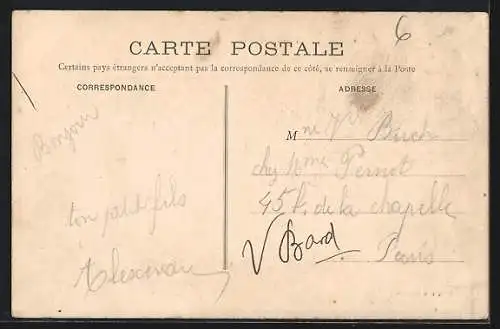 6
CARTE POSTALE
Certains pays étrangers n'acceptant pas la correspondance de ce côté, se renseigner à la Poste
CORRESPONDANCE
ADRESSE
Bonjour
Mme Vve Birch
chez Mme Pernot
45 r. de la chapelle
Paris
ton petit fils
V Bard